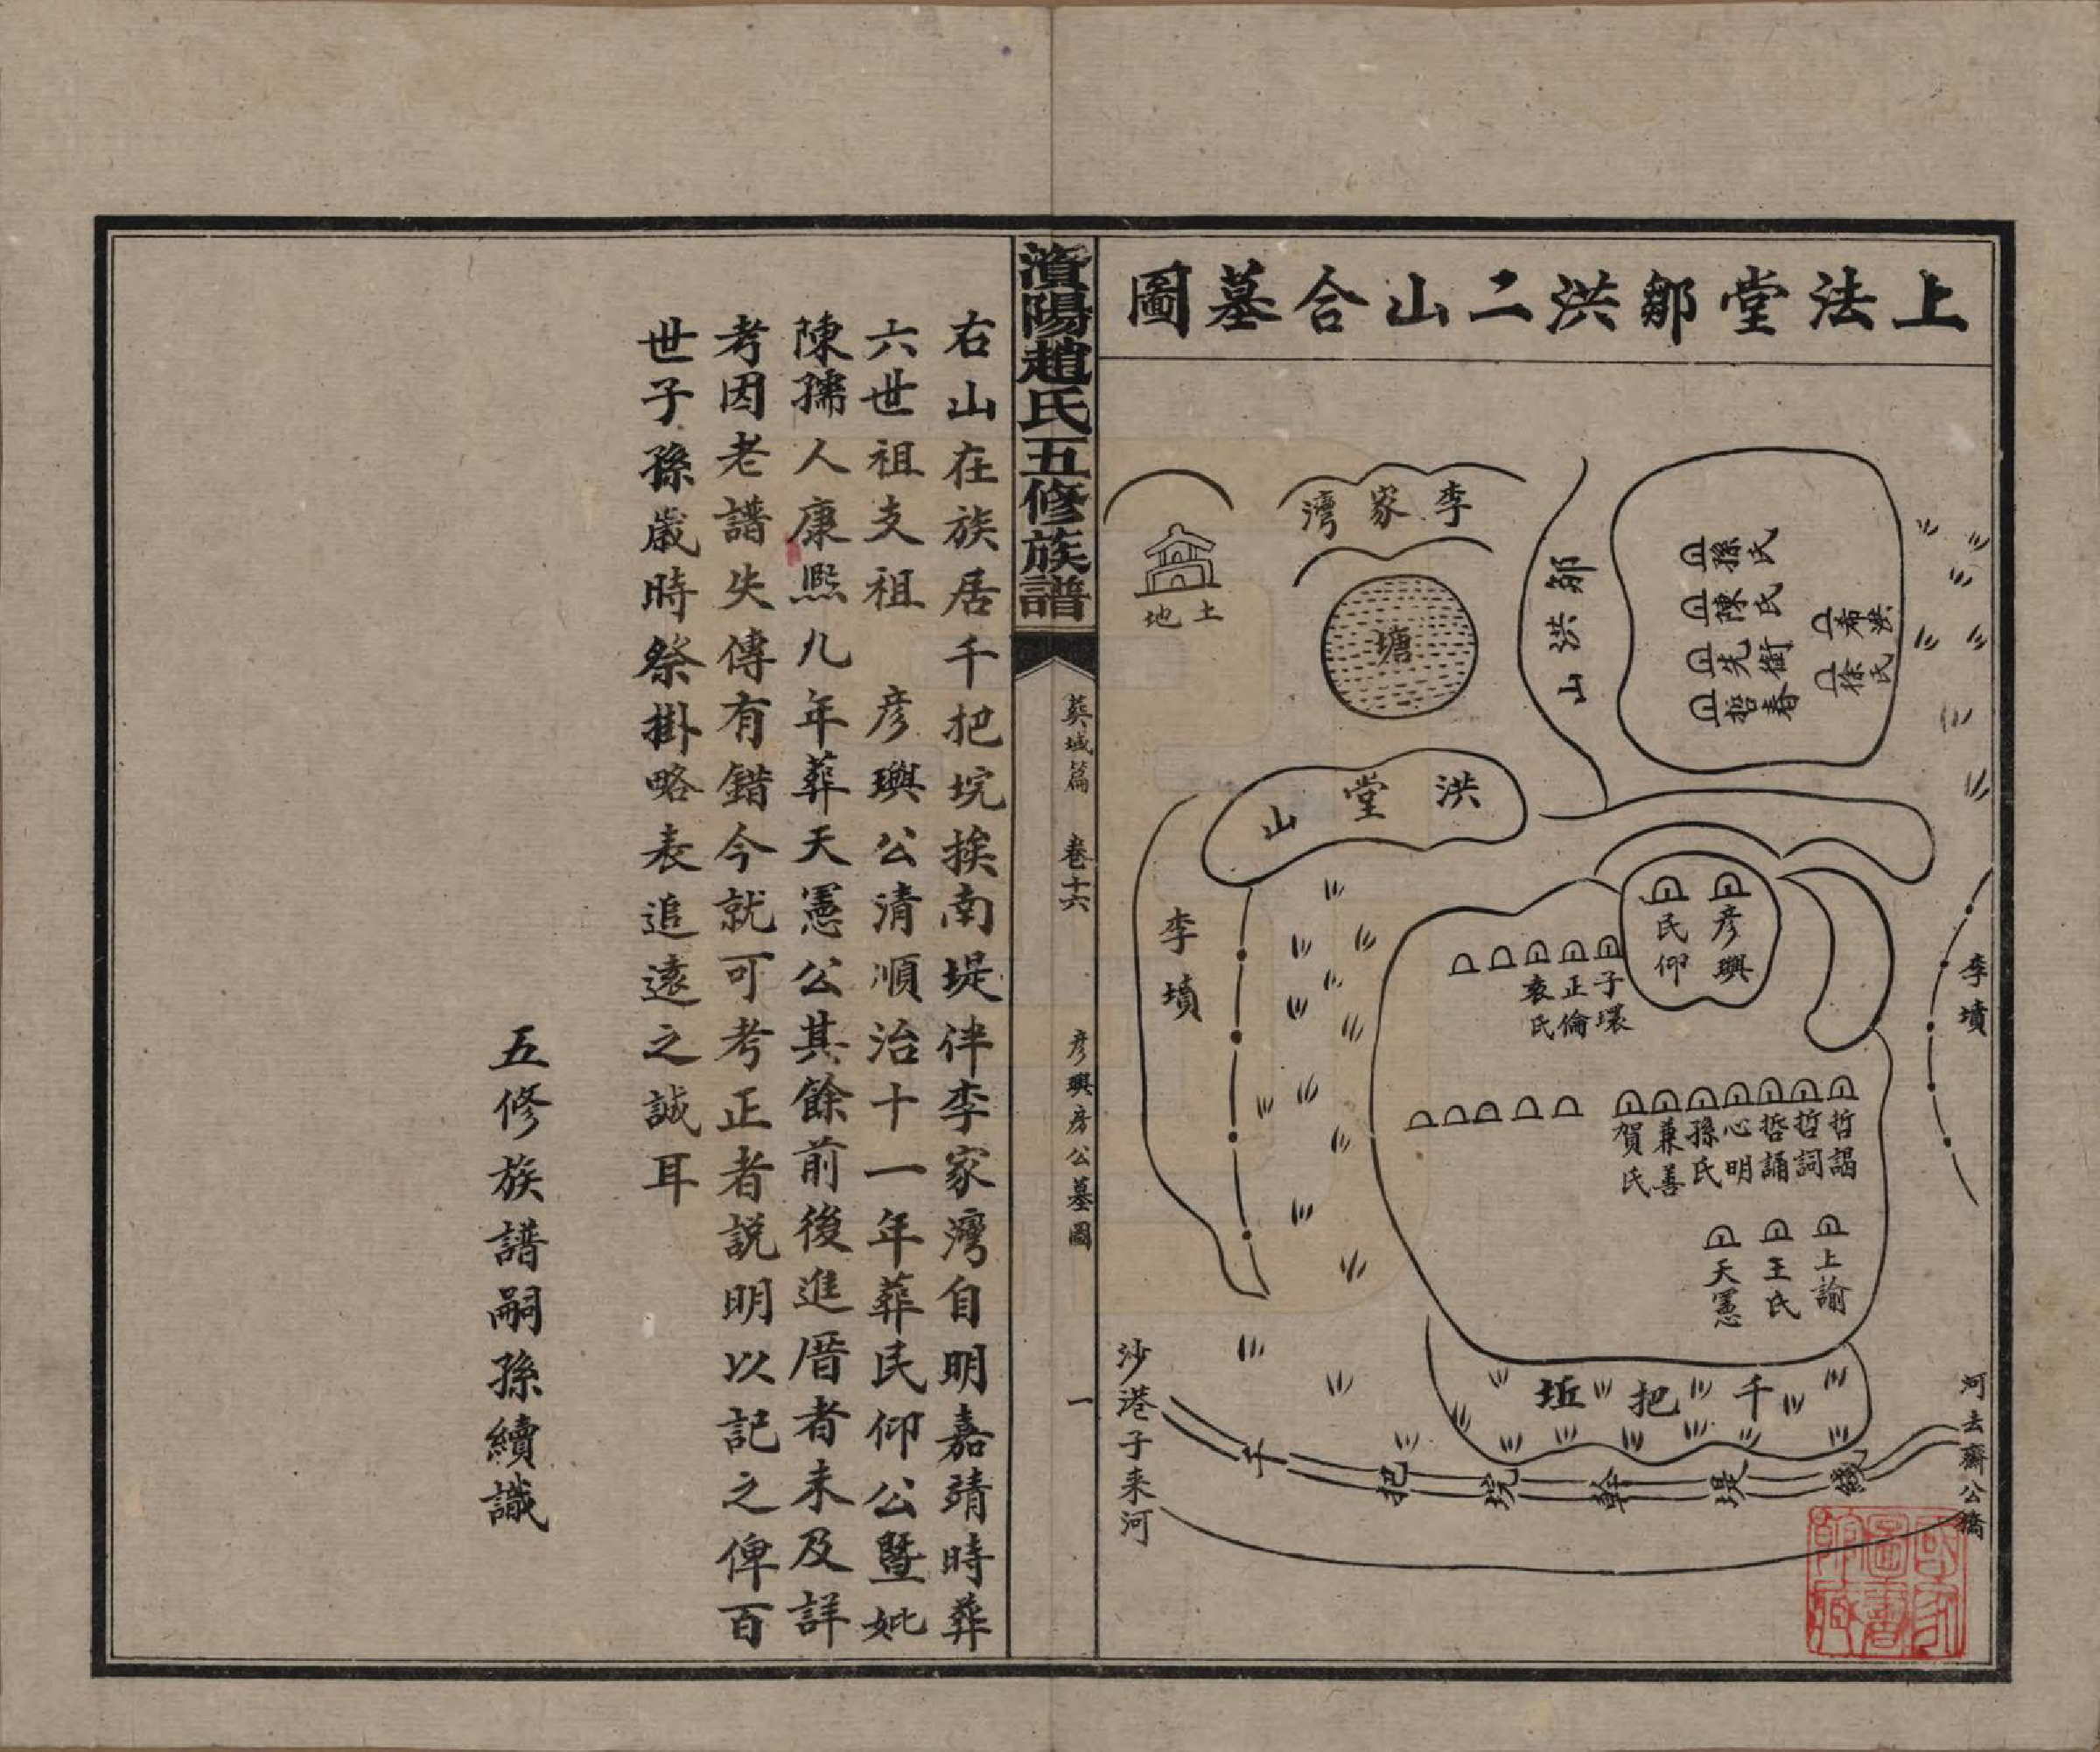 上法堂鄒洪二山合墓圖
孫氏
陳氏
先銜
哲春
希洪
徐氏
鄒洪山
李家灣
塘
土地
洪堂山
李墳
李墳
彦璵
民仰
子環
正倫
袁氏
哲謁
哲詞
哲誦
心明
孫氏
兼善
賀氏
上諭
王氏
天憲
千把坵
千把垸幹堤
河去齋公橋
沙港子来河
濱陽趙氏五修族譜
塋域篇
卷十六
彦璵房公墓圖
一
右山在族居千把垸挨南堤伴李家灣自明嘉靖時葬
六世祖支祖 彦璵公清順治十一年葬民仰公暨妣
陳孺人康熙九年葬天憲公其餘前後進厝者未及詳
考因老譜失傳有錯今就可考正者説明以記之俾百
世子孫歲時祭掛略表追遠之誠耳
五修族譜嗣孫續識
國家圖書館藏